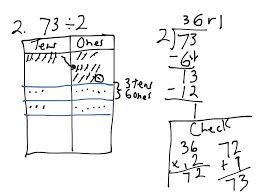 2. 73 ÷ 2
Tens Ones
3 tens
6 ones
36 r 1
2)73
-6↓
13
-12
1
Check
36
x 2
72
72
+ 1
73